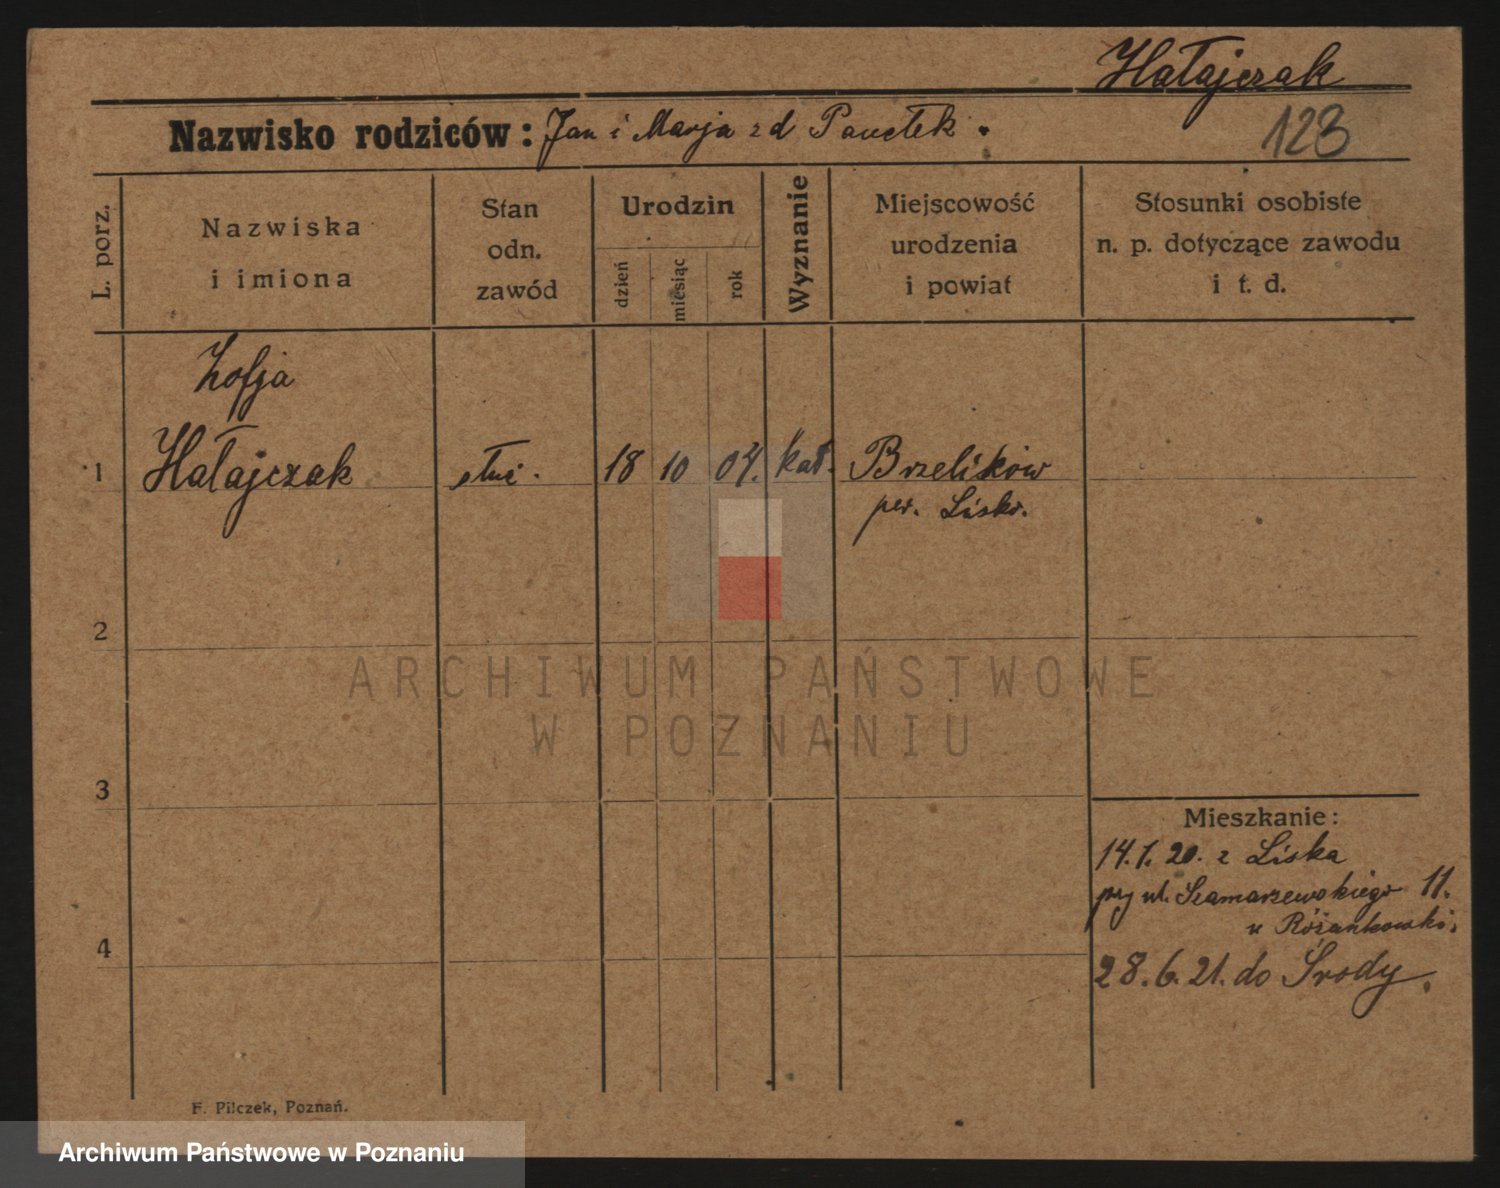 Hałajczak
Nazwisko rodziców: Jan i Marja z d
123
L. porz.
Nazwiska
i imiona
Stan
odn.
zawód
Urodzin
dzień
miesiąc
rok
Wyznanie
Miejscowość
urodzenia
i powiat
Stosunki osobiste
n. p. dotyczące zawodu
i t. d.
Zofja
1 Hałajczak służ. 18 10 04. kat. Brzelików
pow.
2
3
4
ARCHIWUM PAŃSTWOWE
W POZNANIU
Mieszkanie:
14.1.20. z Liska
przy ul. Szamarzewskiego 11.
u Różankowski.
28.6.21. do Środy.
F. Pilczek, Poznań.
Archiwum Państwowe w Poznaniu